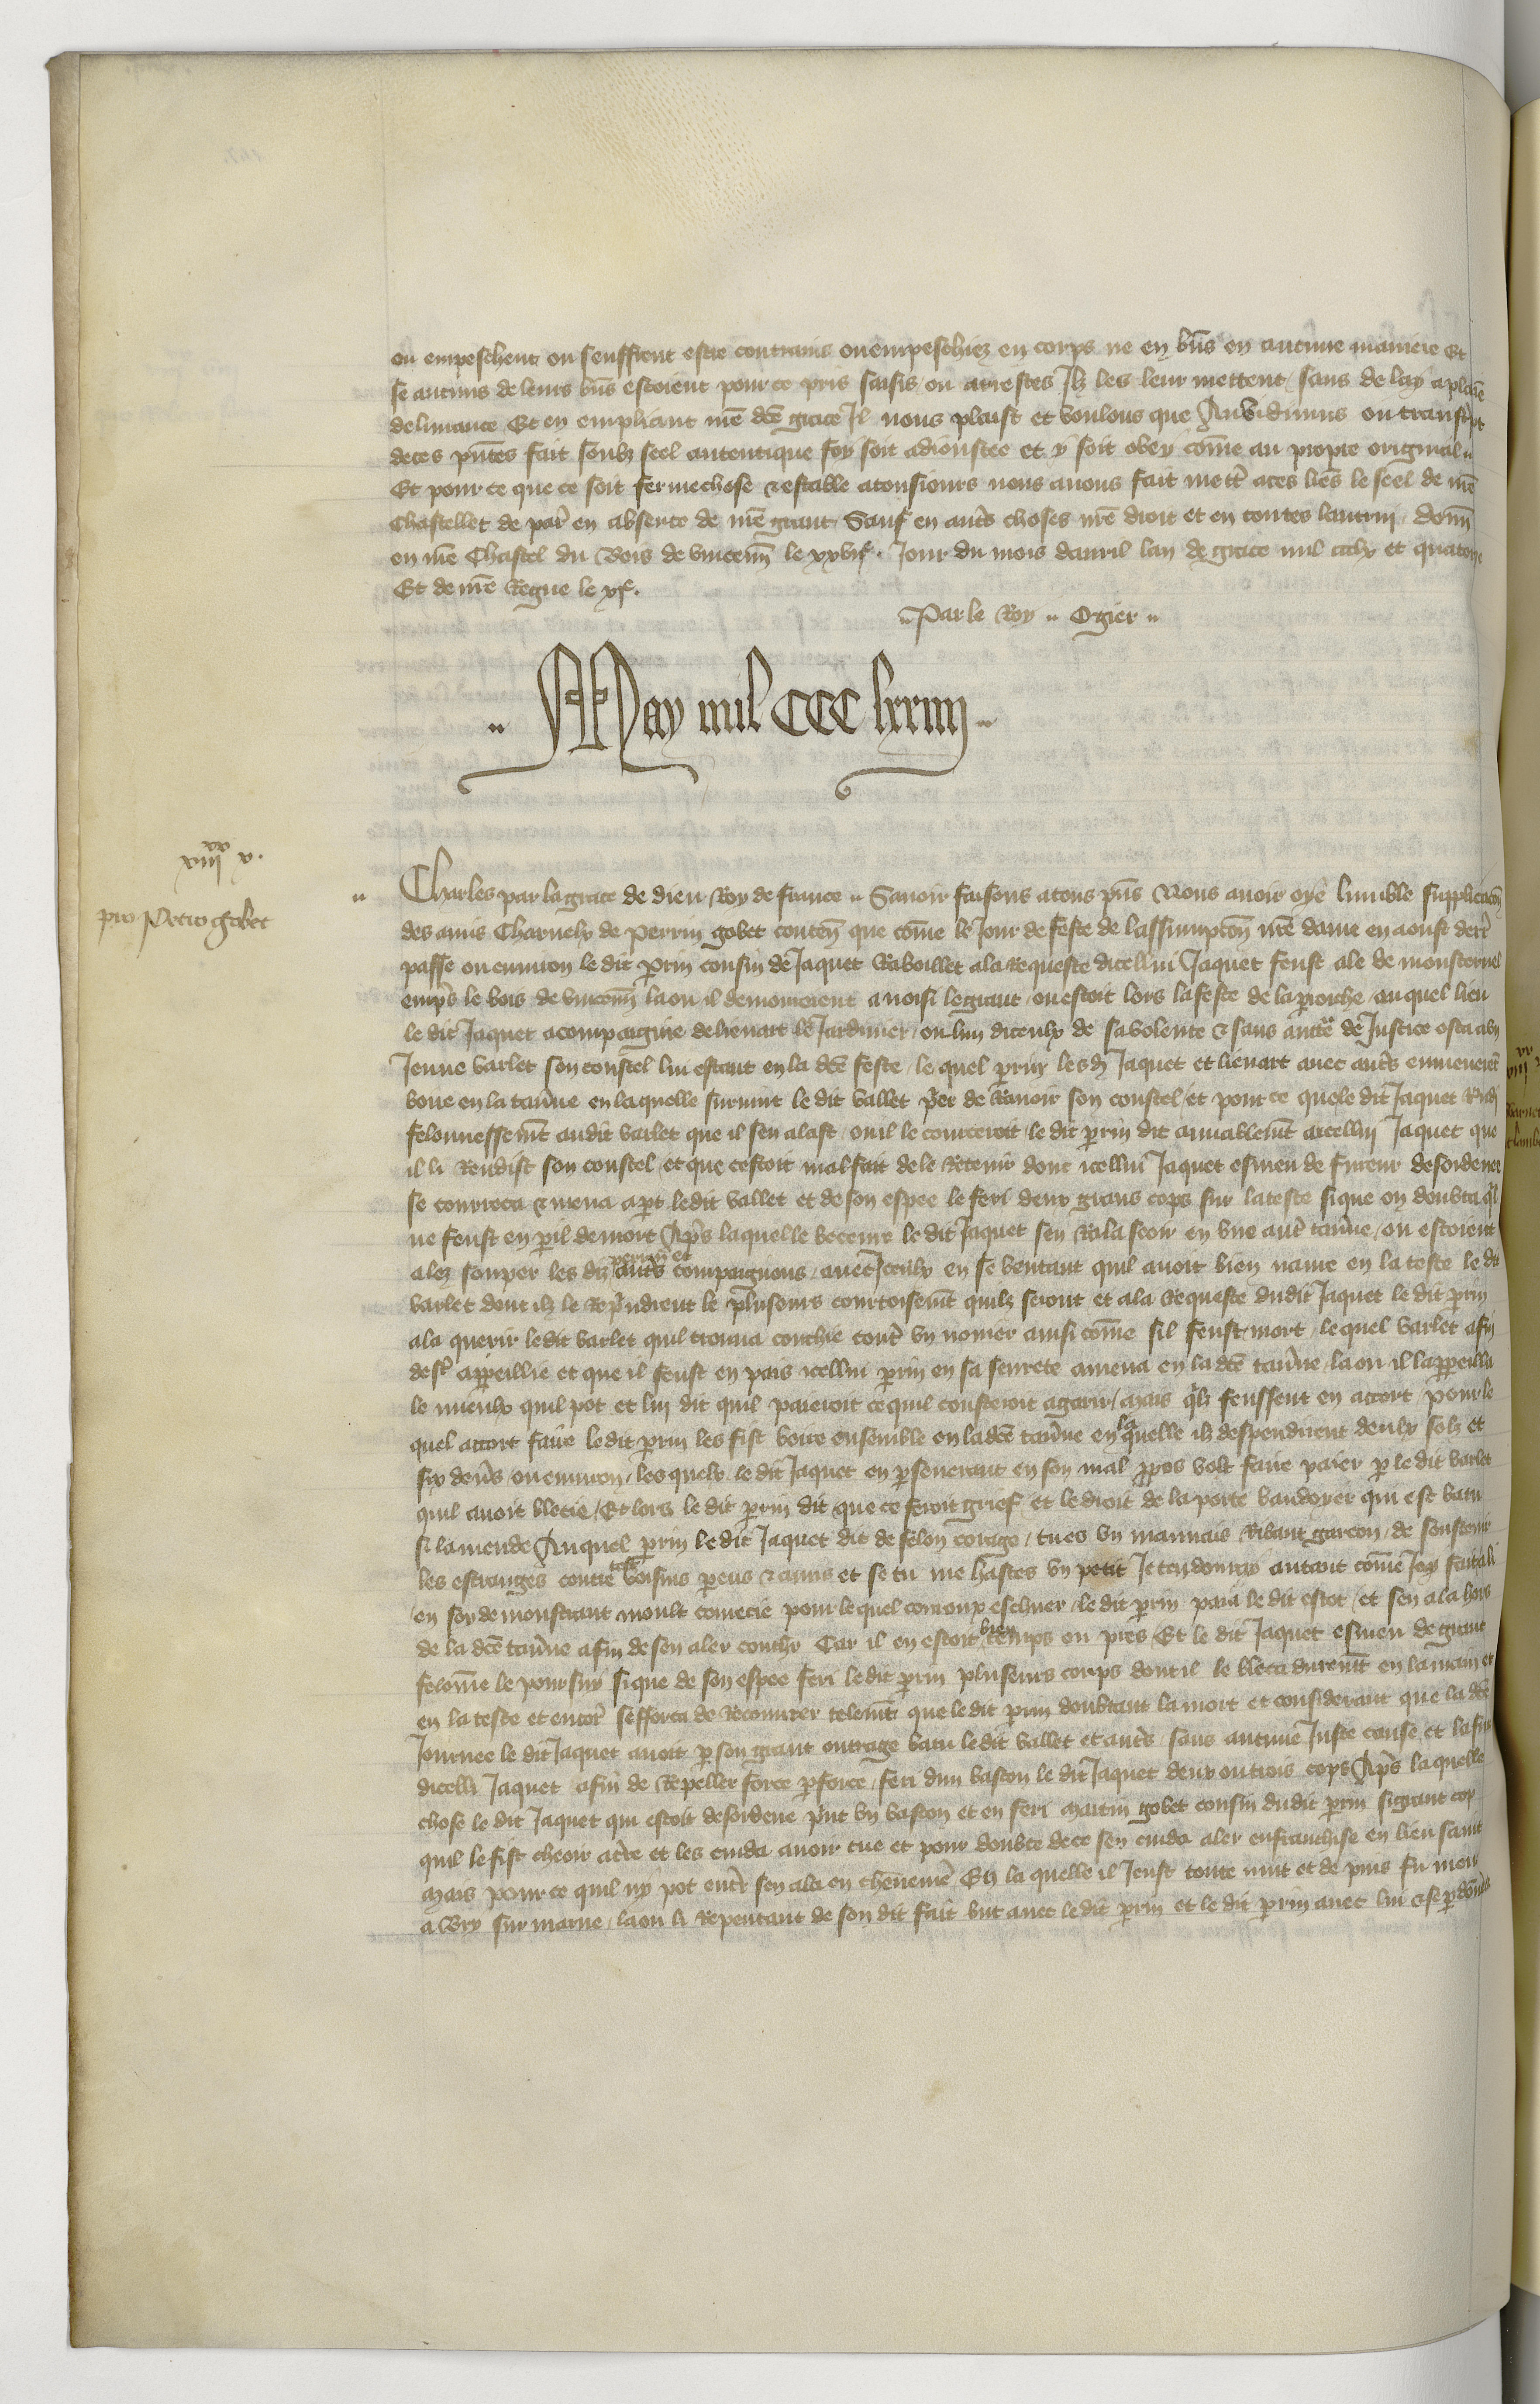 ou empeschent ou seuffrent estre contrains ou empeschiez en corps ne en bñs en aucune maniere Et
se aucuns de leurs bñs estoient pour ce pris saisis ou arrestes Ilz les leur mettent sans delay a plaine
deliurance Et en empliant nr̃e dc̃e grace Il nous plaist et voulons que Au vidimus ou transcript
de ces pñtes fait soubz seel autentique foy soit adioustee et y soit obey cõme au propre original
Et pour ce que ce soit ferme chose & estable a tousiours nous auons fait mettr̃ a ces lr̃es le seel de nr̃e
Chastellet de par̃ en absence de nr̃e grant Sauf en autr̃s choses nr̃e droit et en toutes lautruy donñ
en nr̃e Chastel du Bois de vincenñ le xxviiᵉ Jour du mois dauril lan de grace mil ccclx et quatorze
Et de nr̃e Regne le xjᵉ.
Par le Roy Ogier
May mil CCC lxxiiij
viijˣˣ v.
pro Petro gobet
Charles par la grace de dieu Roy de france Sauoir faisons a tous pñs Nous auoir oye lumble supplicacõn
des amis Charnelx de Perrin gobet conteñ que cõme le Jour de feste de lassumpcõn nr̃e dame en aoust derr̃
passe ou enuiron le dit p̃rin cousin de Jaquet Raboillet a la Requeste dicellui Jaquet feust ale de monsteruel
empr̃s le bois de vincenñ la ou il demouroient a noisi le grant ou estoit lors la feste de la p̃roiche ou quel lieu
le dit Jaquet acompaigne de lienart le Jardinier ou lun diceulx de sa volente & sans auctr̃e de Justice osta a vn
Jeune varlet son coustel lui estant en la dc̃e feste le quel p̃rin les dis Jaquet et lienart auec autr̃s enmenerẽt
boire en la tau̾ne en laquelle suruint le dit vallet p̃er de Rauoir son coustel et pour ce que le dit Jaquet
felonnessemt̃ au dit varlet que il sen alast ou il le courceroit le dit p̃rin dit amiablemt̃ a icellui Jaquet que
il li Rendist son coustel et que cestoit mal fait de le Retenir dont icellui Jaquet esmeu de fureur desordenee
se courreca & mena a p̃t le dit vallet et de son espee le feri deux grans cops sur la teste si que on doubta ql̃
ne feust en p̃il de mort Apr̃s laquelle beceure le dit Jaquet sen Rala seoir en vne autr̃ tau̾ne ou estoient
alez souper les diz perrin et autr̃s compaignons auec Iceulx en se ventant quil auoit bien naure en la teste le dit
varlet dont ilz le Repr̃ndrent le plusieurs courtoisemt̃ quilz seront et a la Requeste du dit Jaquet le dit p̃rin
ala querir le dit varlet quil trouua couchie contr̃ vn noier ainsi cõme sil feust mort le quel varlet afin
destr̃ appeillie et que il feust en pais icellui p̃rin en sa seurete amena en la dc̃e tau̾ne la ou il lappeilla
le mieulx quil pot et lui dit quil paieroit ce quil cousteroit a garir mais qlz̃ feussent en accort pour le
quel accort faire le dit p̃rin les fist boire ensemble en la dc̃e tau̾ne en la quelle ilz despendirent deulx solz et
six den̾s ou enuiron les quelx le dit Jaquet en p̃seuerant en son mal p̃pos volt faire paier p̃ le dit varlet
quil auoit blecie Et lors le dit p̃rin dit que ce seroit grief et le droit de la porte baudoyer qui est batu
si lamende Auquel p̃rin le dit Jaquet dit de felon corage tu es vn mauuais Ribaut garcon de soustenir
les estranges contre tes voisins p̃ens & amis et se tu me hastes vn petit Je ten donray autant cõme Jay fait a li
en soy demonstrant moult courrecie pour le quel courroux escheuer le dit p̃rin paia le dit escot et sen ala hors
de la dc̃e tau̾ne afin de sen aler couchr̃ Car il en estoit bien temps ou pres Et le dit Jaquet esmeu de grant
felonnie le poursui si que de son espee feri le dit p̃rin plusieurs coups dont il le bleca duremt̃ en la main et
en la teste et encor̃ sefforca de Recouurer telemt̃ que le dit p̃rin doubtant la mort et considerant que la dc̃e
Journee le dit Jaquet auoit p̃ son grant outrage batu le dit vallet et autr̃s sans aucune Juste cause et la fu
dicelli Jaquet afin de Repeller force p̃ force feri dun baston le dit Jaquet deux ou trois cops Apr̃s laquelle
chose le dit Jaquet qui estoit desordene pr̃nt vn baston et en feri martin gobet cousin du dit p̃rin si grant cop
quil le fist cheoir a tr̃re et les cuida auoir tue et pour doubte de ce sen cuida aler en franchise en lieu saint
mais pour ce quil ny pot entr̃ sen ala en cheneuier̃ En la quelle il Jeust toute nuit et de puis fu mene
a Bry sur marne la ou li Repentant de son dit fait but auec le dit p̃rin et le dit p̃rin auec lui & se p̃donnerẽt